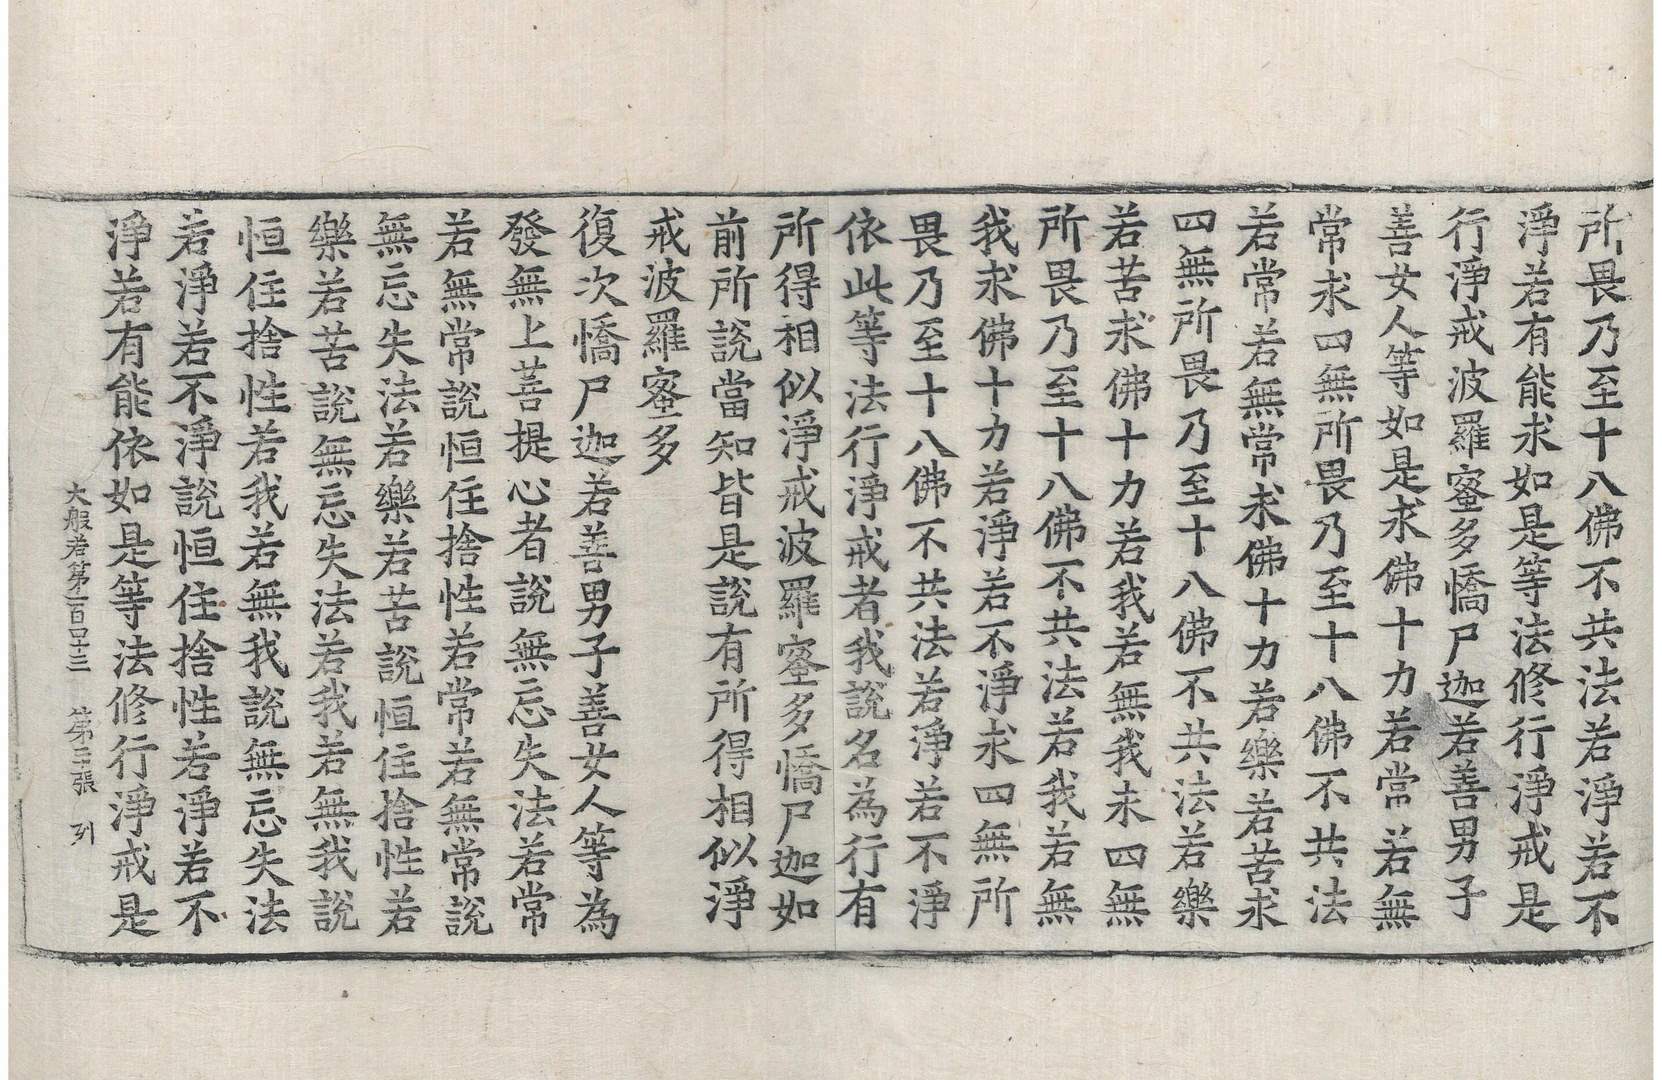 所畏乃至十八佛不共法若淨若不
淨若有能求如是等法修行淨戒是
行淨戒波羅蜜多憍尸迦若善男子
善女人等如是求佛十力若常若無
常求四無所畏乃至十八佛不共法
若常若無常求佛十力若樂若苦求
四無所畏乃至十八佛不共法若樂
若苦求佛十力若我若無我求四無
所畏乃至十八佛不共法若我若無
我求佛十力若淨若不淨求四無所
畏乃至十八佛不共法若淨若不淨
依此等法行淨戒者我說名為行有
所得相似淨戒波羅蜜多憍尸迦如
前所說當知皆是說有所得相似淨
戒波羅蜜多
復次憍尸迦若善男子善女人等為
發無上菩提心者說無忘失法若常
若無常說恒住捨性若常若無常說
無忘失法若樂若苦說恒住捨性若
樂若苦說無忘失法若我若無我說
恒住捨性若我若無我說無忘失法
若淨若不淨說恒住捨性若淨若不
淨若有能依如是等法修行淨戒是
大般若第一百四十三 第三張 列